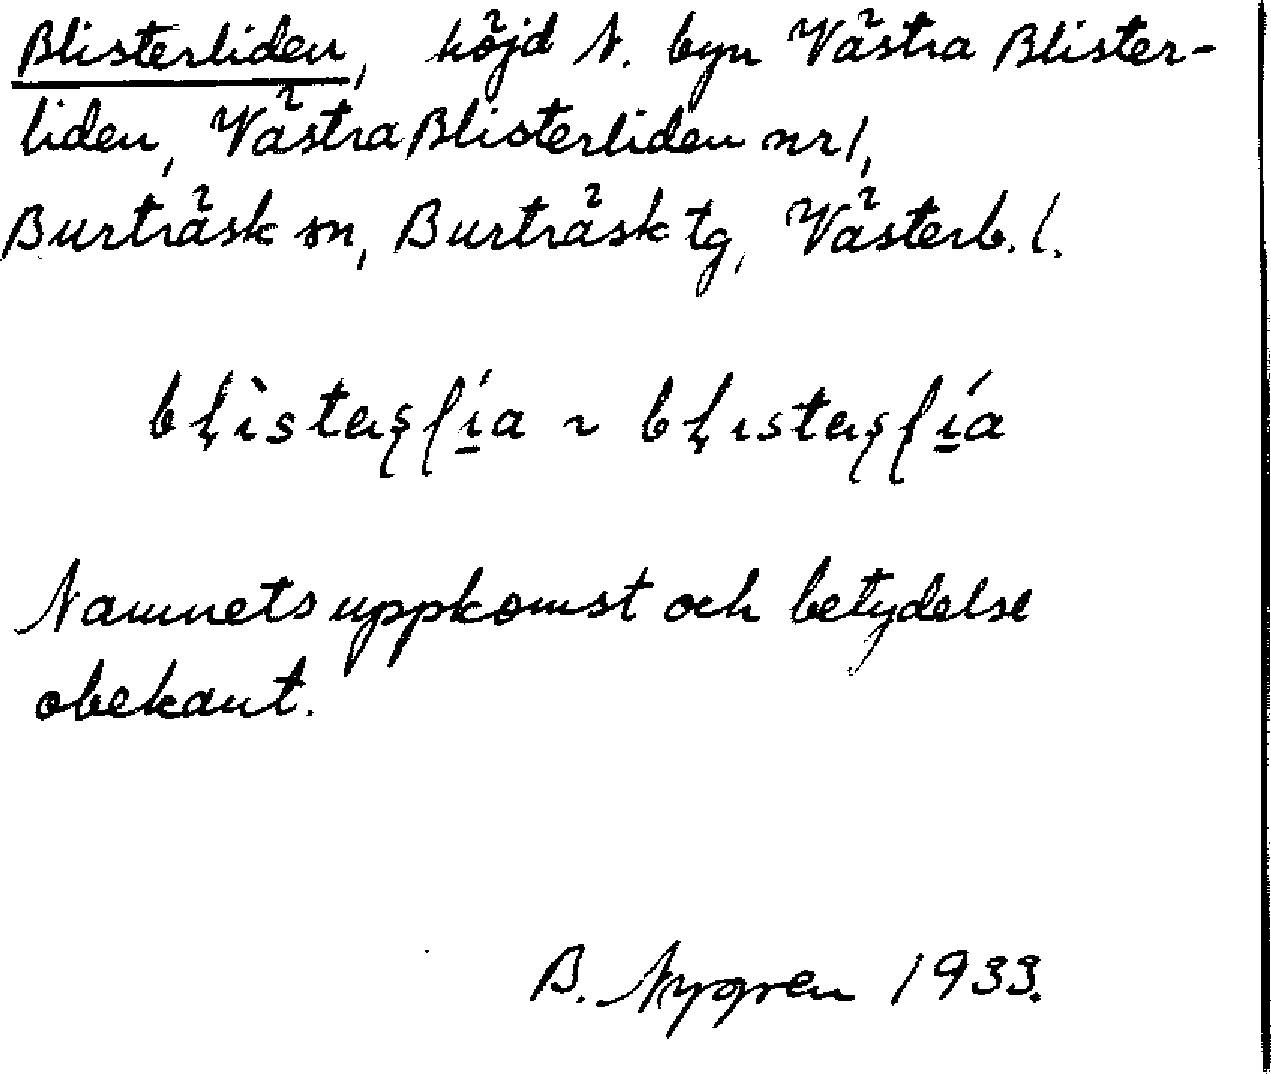 Blisterliden, höjd N. byn Västra Blister-
liden, Västra Blisterliden nr 1,
Burträsk sn, Burträsk tg, Västerb. l.
Namnets uppkomst och betydelse
obekant.
B. Nygren 1933.